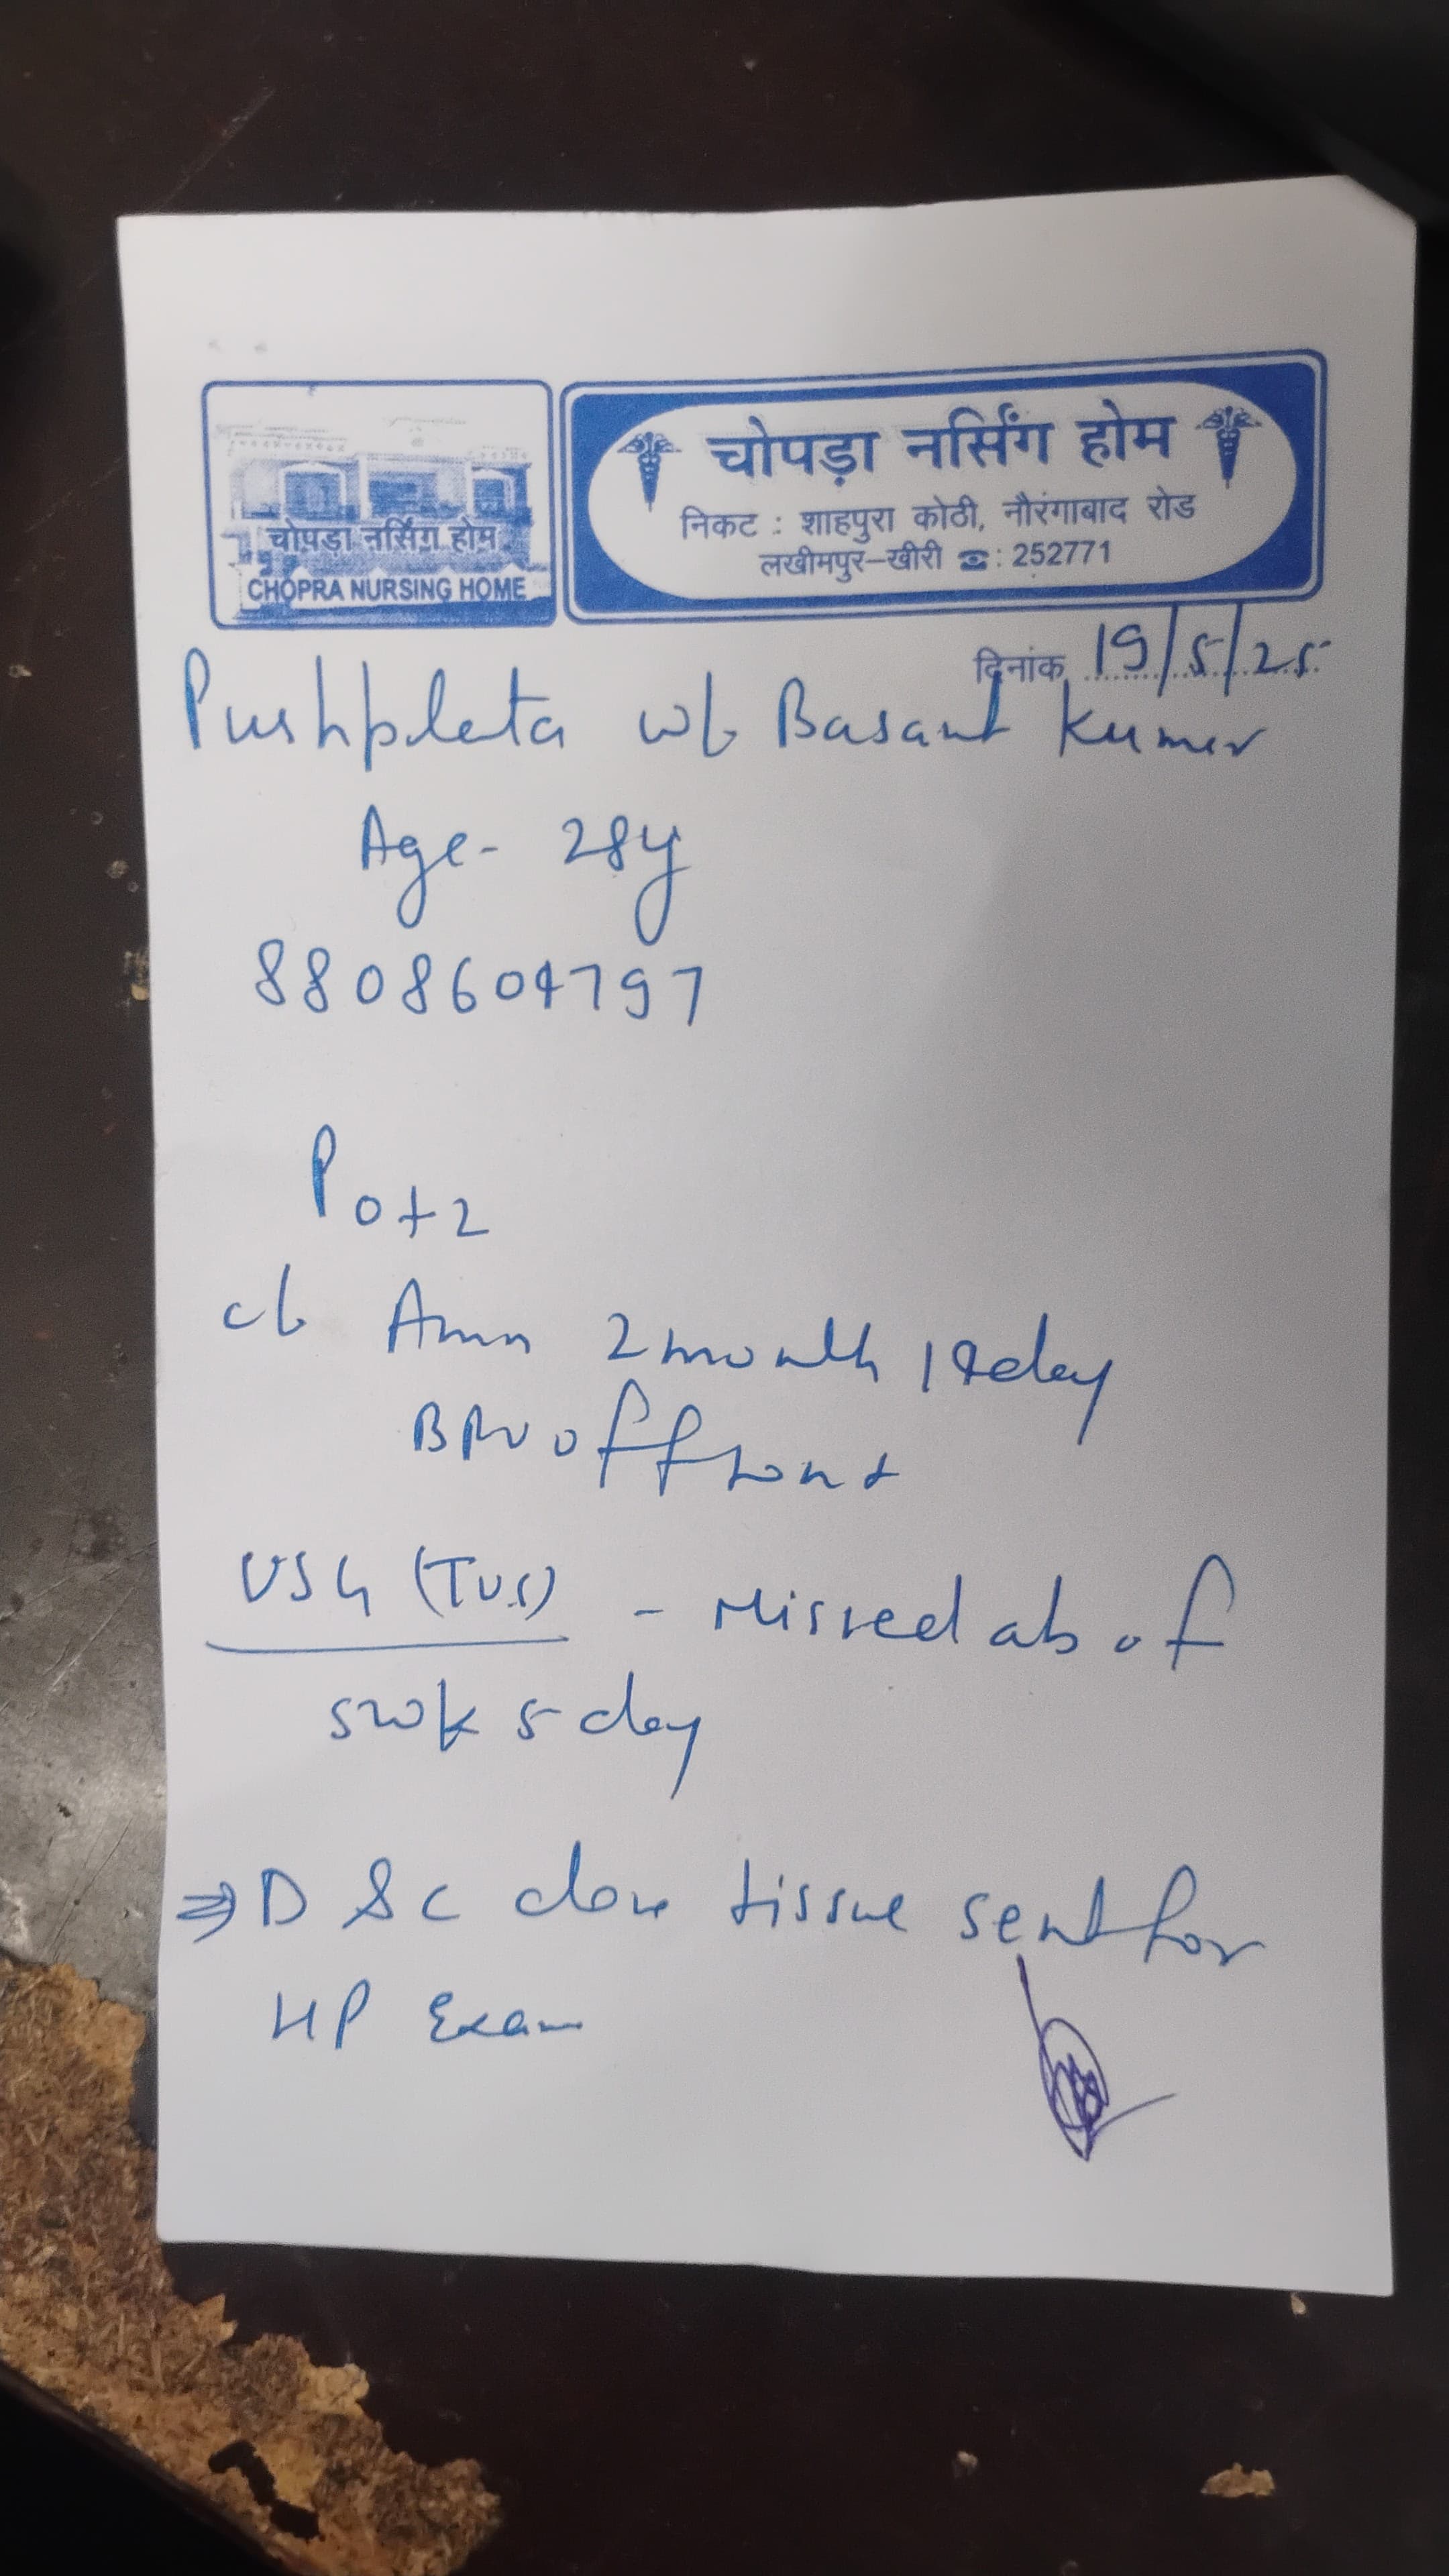 चोपड़ा नर्सिंग होम
CHOPRA NURSING HOME
चोपड़ा नर्सिंग होम
निकट : शाहपुरा कोठी, नौरंगाबाद रोड
लखीमपुर–खीरी ☎ : 252771
दिनांक 19/5/25
Pushplata w/o Basant Kumar
Age - 28y
8808604797
P0+2
c/o Amn 2 month day
BPV off & on
USG (TVS) - Missed ab of
5 wk 5 day
⇒ D & C done tissue sent for
HP Exam